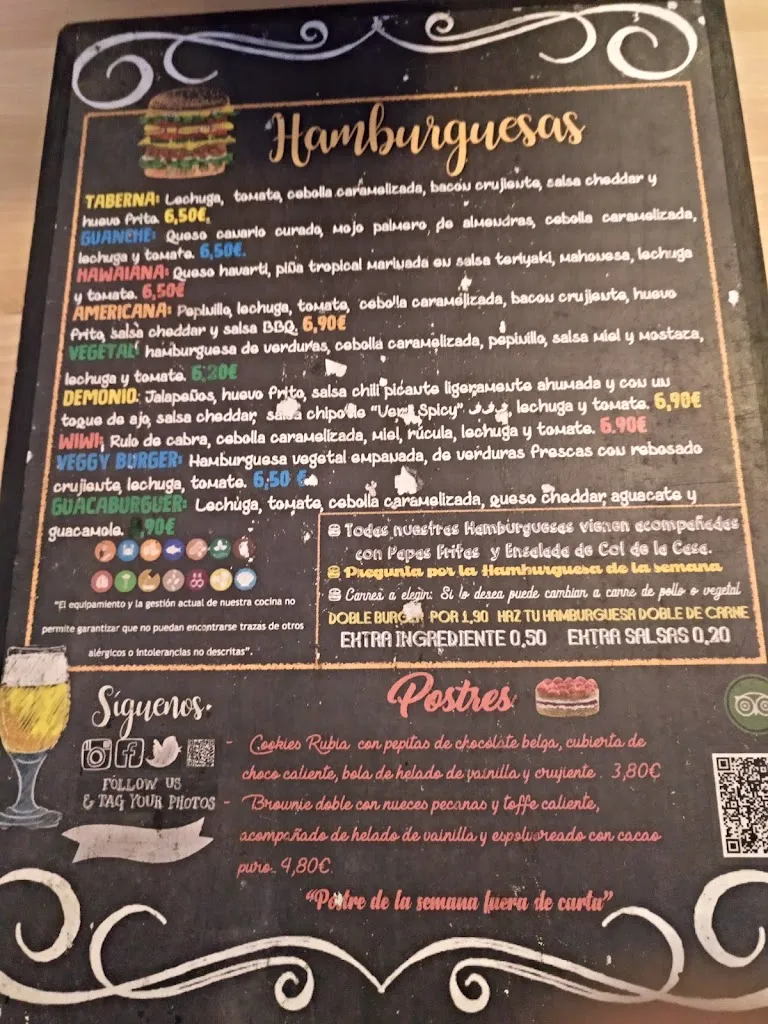 Hamburguesas
TABERNA: Lechuga, tomate, cebolla caramelizada, bacon crujiente, salsa cheddar y
huevo frito. 6,50€.
GUANCHE: Queso canario curado, mojo palmero de almendras, cebolla caramelizada,
lechuga y tomate. 6,50€.
HAWAIANA: Queso havarti, piña tropical marinada en salsa teriyaki, mahonesa, lechuga
y tomate. 6,50€
AMERICANA: Pepinillo, lechuga, tomate, cebolla caramelizada, bacon crujiente, huevo
frito, salsa cheddar y salsa BBQ. 6,90€
VEGETAL: hamburguesa de verduras, cebolla caramelizada, pepinillo, salsa Miel y Mostaza,
lechuga y tomate. 6,20€
DEMONIO: Jalapeños, huevo frito, salsa chili picante ligeramente ahumada y con un
toque de ajo, salsa cheddar, salsa chipotle "Very Spicy" , lechuga y tomate. 6,90€
WIWI: Rulo de cabra, cebolla caramelizada, miel, rúcula, lechuga y tomate. 6.90€
VEGGY BURGER: Hamburguesa vegetal empanada, de verduras frescas con rebosado
crujiente, lechuga, tomate. 6,50 €
GUACABURGUER: Lechuga, tomate, cebolla caramelizada, queso cheddar, aguacate y
guacamole. ,90€
Todas nuestras Hamburguesas vienen acompañadas
con Papas Fritas y Ensalada de Col de la Casa.
Pregunta por la Hamburguesa de la semana
Carnes a elegir: Si lo desea puede cambiar a carne de pollo o vegetal
DOBLE BURGER POR 1,90 HAZ TU HAMBURGUESA DOBLE DE CARNE
EXTRA INGREDIENTE 0,50 EXTRA SALSAS 0,20
"El equipamiento y la gestión actual de nuestra cocina no
permite garantizar que no puedan encontrarse trazas de otros
alérgicos o intolerancias no descritas".
Síguenos.
FOLLOW US
& TAG YOUR PHOTOS
Postres
- Cookies Rubia con pepitas de chocolate belga, cubierta de
choco caliente, bola de helado de vainilla y crujiente . 3,80€
- Brownie doble con nueces pecanas y toffe caliente,
acompañado de helado de vainilla y espolvoreado con cacao
puro. 4,80€.
"Postre de la semana fuera de carta"